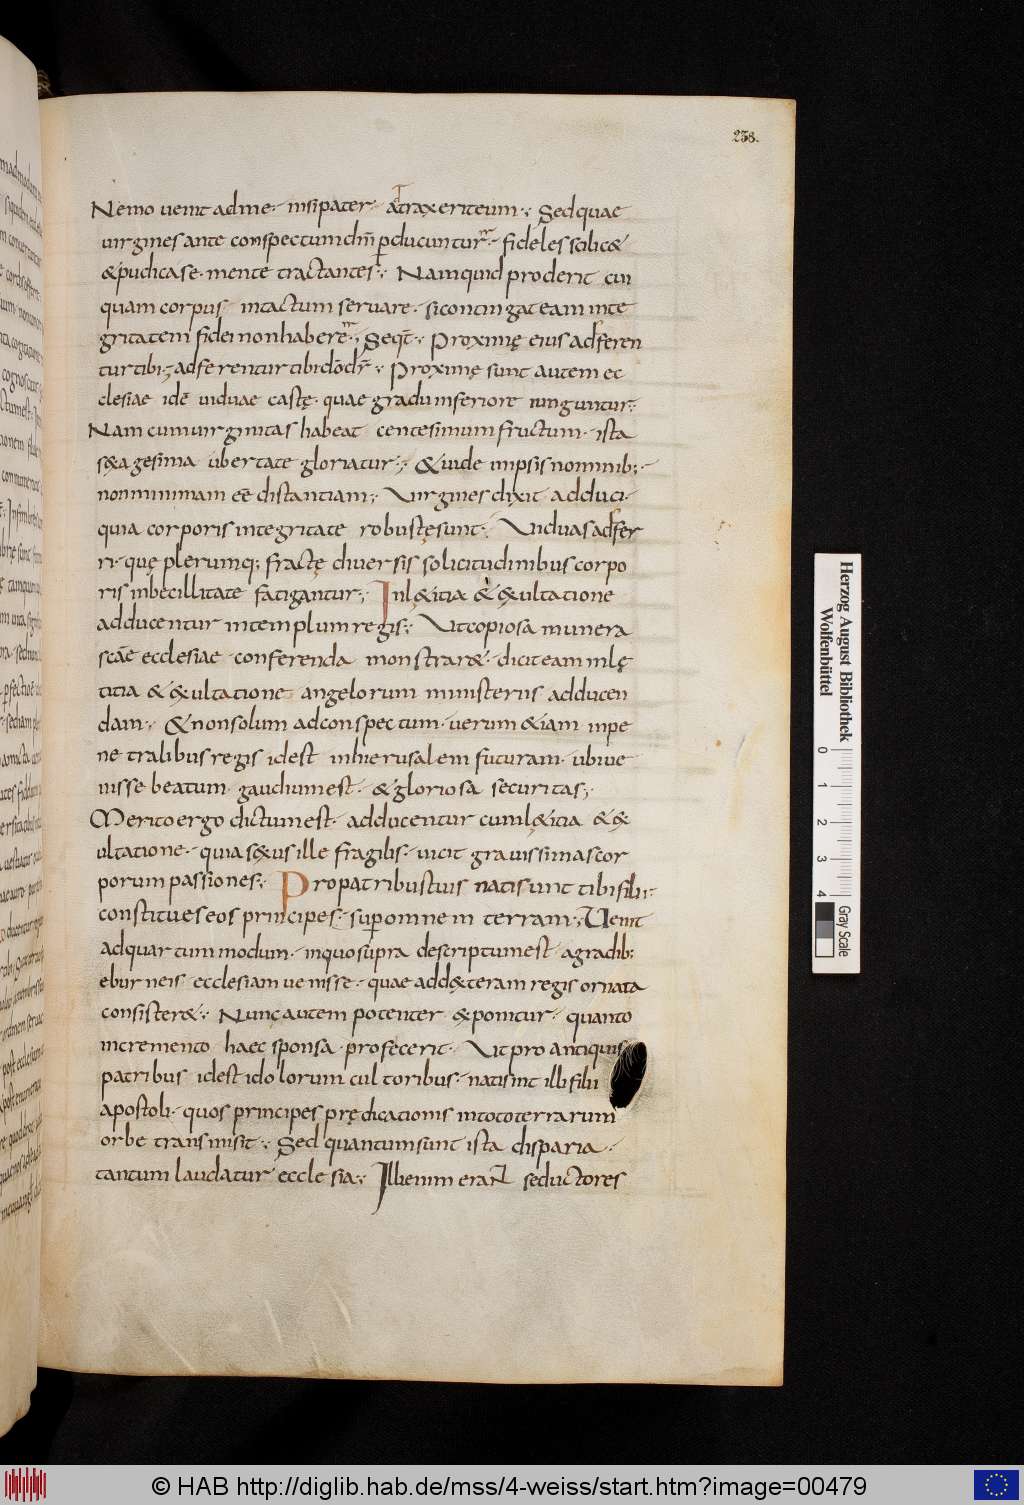 238.
Nemo uenit ad me · nisi pater · atraxerit eum · Sed quae
uirgines ante conspectum dn̄i ꝑducuntur · fideles scilic&
& pudicas e · mente tractantes · Nam quid proderit cui
quam corpus intactum seruare · si contingat eam inte
gritatem fidei non habere · Seqt̄ · Proximę eius adferen
tur tibi · adferentur tibi dōdr̄ · Proximę sunt autem ec
clesiae idē uiduae castę · quae gradu inferiore iunguntur ·
Nam cum uirginitas habeat centesimum fructum · ista
s&agesima ubertate gloriatur · & uide in ipsis nominib; ·
non minimam eē distantiam · Virgines dixit adduci ·
quia corporis integritate robustę sunt · Viduas adfer
ri · quę plerumq; fractę diuersis sollicitudinibus corpo
ris inbecillitate fatigantur · In l&itia & &ultatione
adducentur in templum regis · Vt copiosa munera
scāe ecclesiae conferenda monstrar& · dicit eam in lę
titia & &ultatione angelorum ministeriis adducen
dam · & non solum ad conspectum · uerum &iam in pe
ne tralibus regis idest in hierusalem futuram · ubi ue
nisse beatum gaudium est · & gloriosa securitas ·
Merito ergo dictum est · adducentur cum l&itia & &
ultatione · quia s&us ille fragilis · uicit grauissimas cor
porum passiones · Pro patribus tuis nati sunt tibi filii ·
constitues eos principes · suꝑ omnem terram · Uenit
ad quartum modum · in quo supra descriptum est · a gradib;
eburneis ecclesiam uenisse · quae ad d&teram regis ornata
consister& · Nunc autem potenter &ponitur · quanto
incremento haec sponsa profecerit · Vt pro antiquis
patribus idest idolorum cultoribus · nati sint illi filii
apostoli · quos principes prędicationis in toto terrarum
orbe transmisit · Sed quantum sunt ista disparia ·
tantum laudatur ecclesia · Illi enim erant seductores
Herzog August Bibliothek
Wolfenbüttel
0 1 2 3 4
Gray Scale
© HAB http://diglib.hab.de/mss/4-weiss/start.htm?image=00479